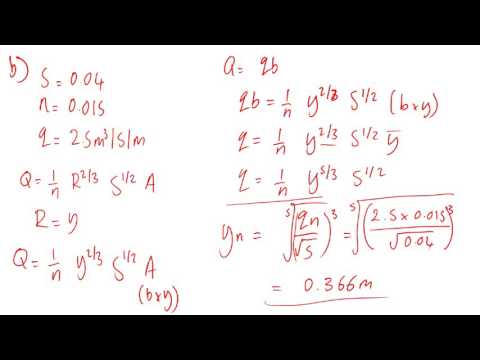 b) S = 0.04
n = 0.015
q = 2.5m³/s/m
Q = 1/n R^2/3 S^1/2 A
R = y
Q = 1/n y^2/3 S^1/2 A
(b×y)
Q = qb
qb = 1/n y^2/3 S^1/2 (b×y)
q = 1/n y^2/3 S^1/2 y
q = 1/n y^5/3 S^1/2
yn = ⁵√(qn/√S)³ = ⁵√(2.5×0.015/√0.04)³
= 0.366m